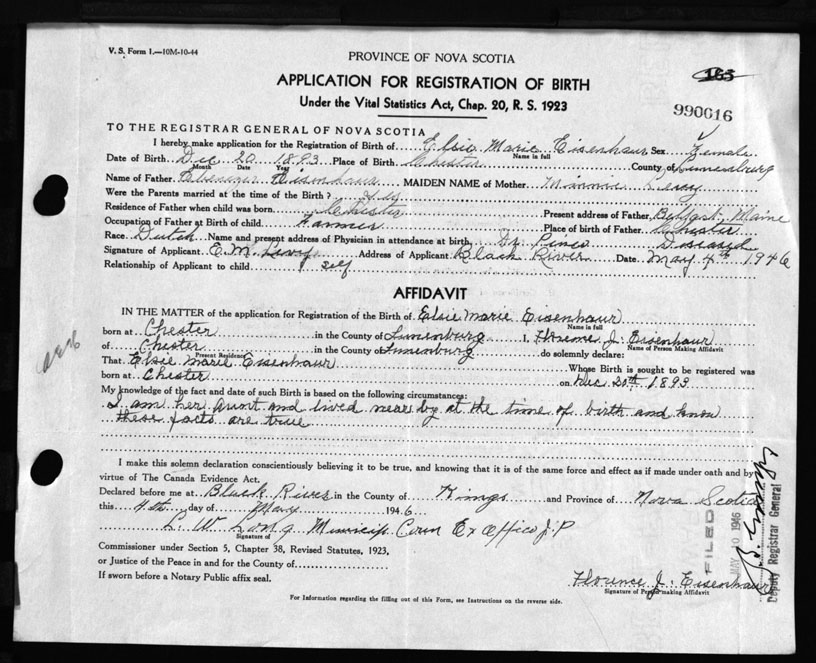 V. S. Form 1.—10M-10-44
PROVINCE OF NOVA SCOTIA
165
APPLICATION FOR REGISTRATION OF BIRTH
Under the Vital Statistics Act, Chap. 20, R. S. 1923
990616
TO THE REGISTRAR GENERAL OF NOVA SCOTIA
I hereby make application for the Registration of Birth of Elsie Marie Eisenhaur Sex Female
Name in full
Date of Birth Dec 20 1893 Place of Birth Chester County of Lunenburg
Month Date Year
Name of Father Ebenezer Eisenhaur MAIDEN NAME of Mother Minnie Levy
Were the Parents married at the time of the Birth? yes
Residence of Father when child was born Chester Present address of Father Belfast, Maine
Occupation of Father at Birth of child Farmer Place of birth of Father Chester
Race Dutch Name and present address of Physician in attendance at birth Dr Deceased
Signature of Applicant E. M. Address of Applicant Black River Date May 4th 1946
Relationship of Applicant to child self
AFFIDAVIT
IN THE MATTER of the application for Registration of the Birth of Elsie Marie Eisenhaur
Name in full
born at Chester in the County of Lunenburg I, Florence J. Eisenhaur
Name of Person Making Affidavit
of Chester in the County of Lunenburg do solemnly declare:
Present Residence
That Elsie Marie Eisenhaur Whose Birth is sought to be registered was
born at Chester on Dec 20th 1893
My knowledge of the fact and date of such Birth is based on the following circumstances:
I am her aunt and lived near by at the time of birth and know
these facts are true
I make this solemn declaration conscientiously believing it to be true, and knowing that it is of the same force and effect as if made under oath and by
virtue of The Canada Evidence Act.
Declared before me at Black River in the County of Kings and Province of Nova Scotia
this 4th day of May 1946
L. W. Long Municip Coun Ex Offico J. P
Signature of
Commissioner under Section 5, Chapter 38, Revised Statutes, 1923,
or Justice of the Peace in and for the County of
If sworn before a Notary Public affix seal.
Florence J. Eisenhaur
Signature of Person making Affidavit
For Information regarding the filling out of this Form, see Instructions on the reverse side.
FILED
MAY 10 1946
Deputy Registrar General